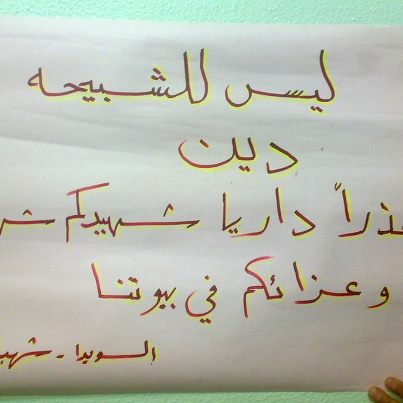 ليس للشبيحه
دين
عذراً داريا شهيدكم
وعزائكم في بيوتنا
السويدا -